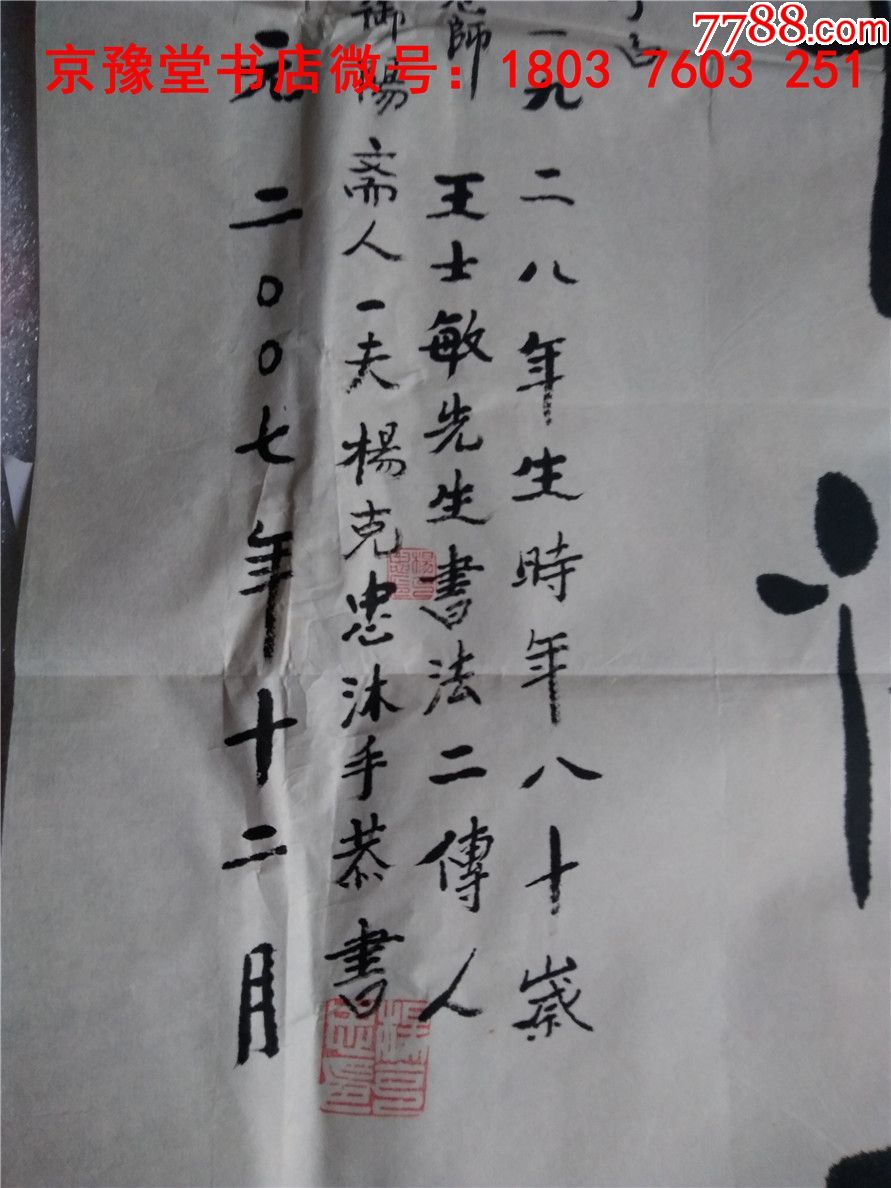 7788.com
京豫堂书店微号：1803 7603 251
一九二八年生時年八十歲
恩師 王士敏先生書法二傳人
御陽斋人一夫楊克忠沐手恭書
元二〇〇七年十二月